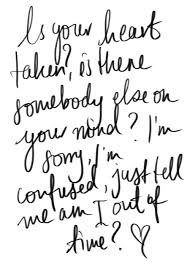 Is your heart
taken? is there
somebody else on
your mind? I'm
sorry, I'm
confused, just tell
me am I out of
time? ♡